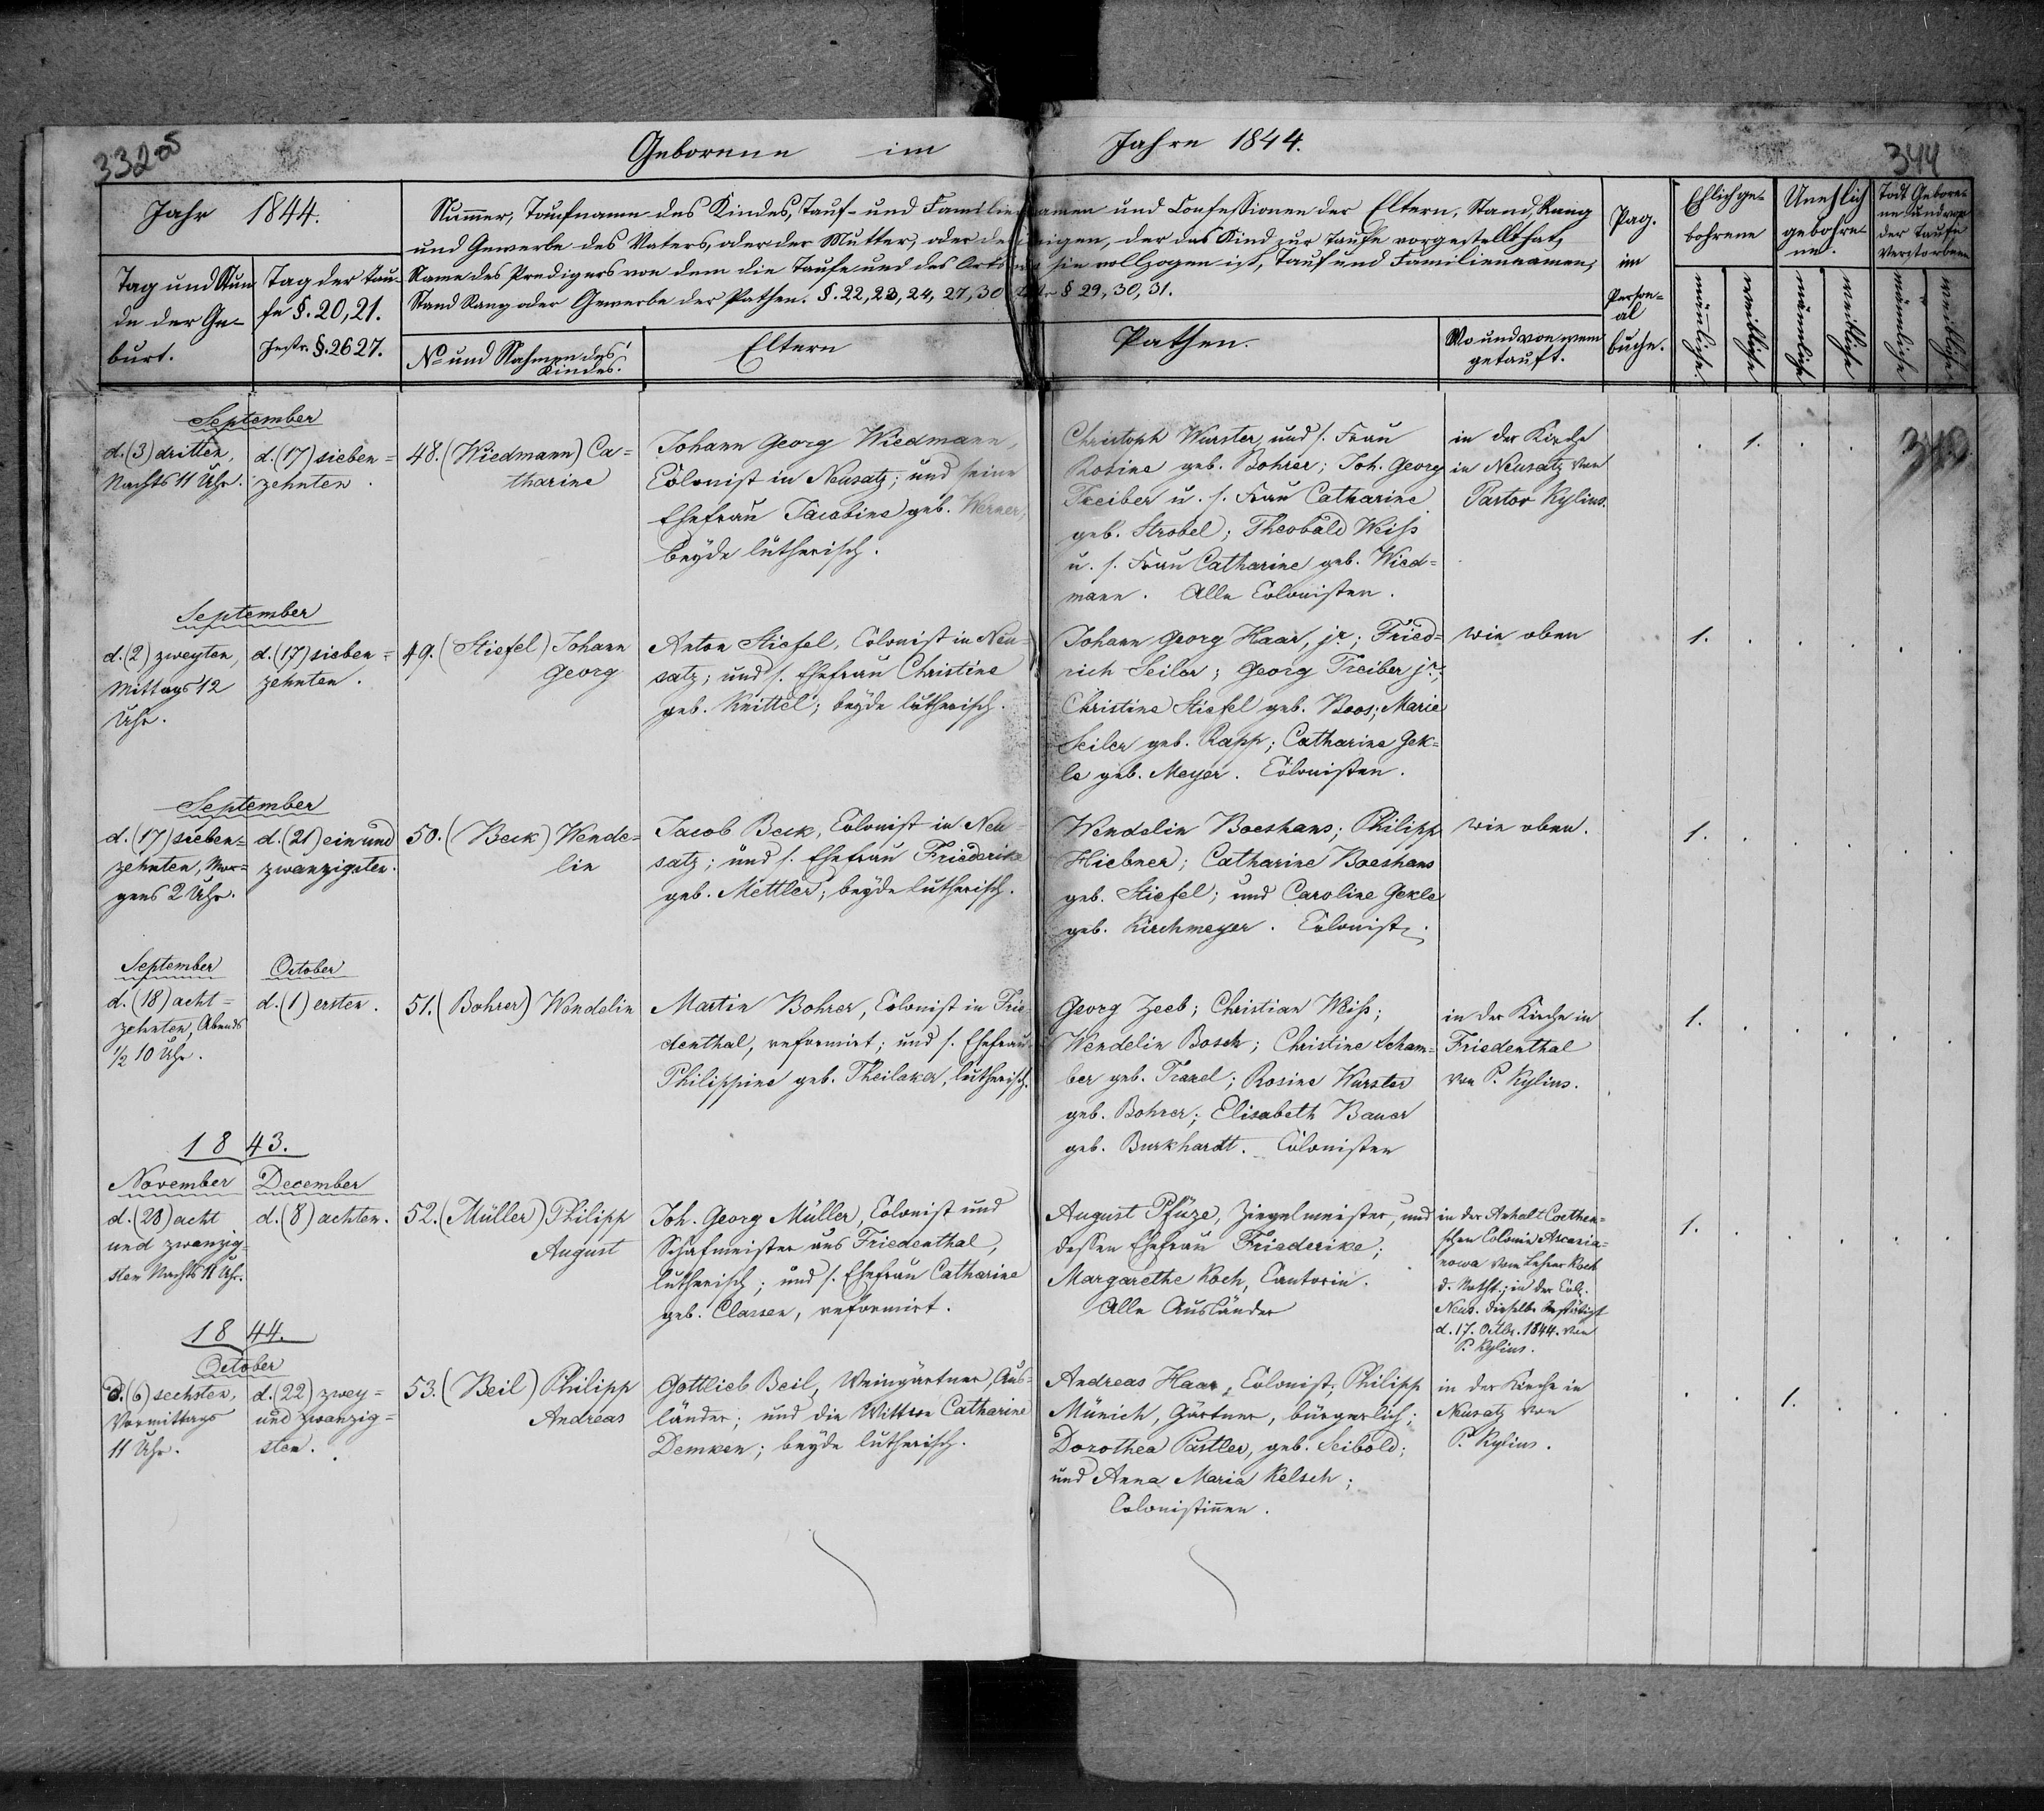 332 05
Geborene im Jahre 1844.
344
Jahr 1844.
Nummer, Taufname des Kindes, Tauf- und Familiennamen und Confessionen der Eltern, Stand, Rang
und Gewerbe des Vaters, oder der Mutter, oder desjenigen, der das Kind zur Taufe vorgestellt hat,
Name des Predigers von dem die Taufe und des Orts wo sie vollzogen ist, Tauf und Familiennamen,
Stand Rang oder Gewerbe der Pathen. §. 22, 23, 24, 27, 30 § 29, 30, 31.
Tag und Stun-
de der Ge-
burt.
Tag der Tau-
fe §. 20, 21.
Instr. §. 26 27.
No und Nahmen des
Kindes.
Eltern
Pathen.
Wo und von wem
getauft.
Pag.
im
Person-
al
buche.
Ehlich ge-
bohrene
Unehlich
gebohre-
ne.
Todt Gebore-
ne und vor
der Taufe
Verstorbene
männliche.
weibliche
männliche
weibliche
männliche
weibliche
September
d. (3) dritten,
Nachts 11 Uhr.
d. (17) sieben=
zehnten.
48. (Wiedmann) Ca=
tharine
Johann Georg Wiedmann,
Colonist in Neusatz; und seine
Ehefrau Jacobine geb. Werner,
beyde lutherisch.
Christoph Wurster, und s. Frau
Rosine geb. Bohrer; Joh. Georg
Treiber u. s. Frau Catharine
geb. Strobel; Theobald Weiss
u. s. Frau Catharine geb. Wied=
mann. Alle Colonisten.
in der Kirche
in Neusatz von
Pastor Kylius.
1.
343
September
d. (2) zweyten,
Mittags 12
Uhr.
d. (17) sieben=
zehnten.
49. (Stiefel) Johann
Georg
Anton Stiefel, Colonist in Neu=
satz; und s. Ehefrau Christine
geb. Knittel; beyde lutherisch.
Johann Georg Haar, jr.; Fried=
rich Seiler; Georg Treiber jr.;
Christine Stiefel geb. Boos; Marie
Seiler geb. Rapp; Catharine Gek=
le geb. Meyer. Colonisten.
wie oben
1.
September
d. (17) sieben=
zehnten, Mor=
gens 2 Uhr.
d. (21) ein und
zwanzigsten.
50. (Beck) Wende=
lin
Jacob Beck, Colonist in Neu=
satz; und s. Ehefrau Friederike
geb. Mettler; beyde lutherisch.
Wendelin Boeshans; Philipp
Hiebner; Catharine Boeshans
geb. Stiefel; und Caroline Gekle
geb. Kirchmeyer. Colonist.
wie oben.
1.
September
d. (18) acht=
zehnten, Abends
½ 10 Uhr.
October
d. (1) ersten.
51. (Bohrer) Wendelin
Martin Bohrer, Colonist in Frie=
denthal, reformirt; und s. Ehefrau
Philippine geb. Theilaker, lutherisch.
Georg Zeeb; Christian Weiss;
Wendelin Bosch; Christine Scham=
ber geb. Traxel; Rosine Wurster
geb. Bohrer; Elisabeth Bauer
geb. Burkhardt. Colonisten
in der Kirche in
Friedenthal
von P. Kylius.
1.
1843.
November
December
d. (28) acht
und zwanzig=
sten Nachts 11 Uhr.
d. (8) achten.
52. (Müller) Philipp
August
Joh. Georg Müller, Colonist und
Schafmeister aus Friedenthal,
lutherisch; und s. Ehefrau Catharine
geb. Classen, reformirt.
August Pfüze, Ziegelmeister, und
dessen Ehefrau Friederike;
Margarethe Koch, Cantorin.
Alle Ausländer
in der Anhalt Coethen=
schen Colonie Ascania=
nowa vom Lehrer Koch
d. Notht.; in der Col.
Neus. dieselbe bestätigt
d. 17. Octbr. 1844. von
P. Kylius.
1.
1844.
October
d. (6) sechsten,
Vormittags
11 Uhr.
d. (22) zwey=
und zwanzig=
sten.
53. (Beil) Philipp
Andreas
Gottlieb Beil, Weingärtner, Aus=
länder; und die Wittwe Catharine
Demken; beyde lutherisch.
Andreas Haar, Colonist; Philipp
Münich, Gärtner, bürgerlich;
Dorothea Pastler, geb. Seibold;
und Anna Maria Kelsch;
Colonistinnen.
in der Kirche in
Neusatz von
P. Kylius.
1.